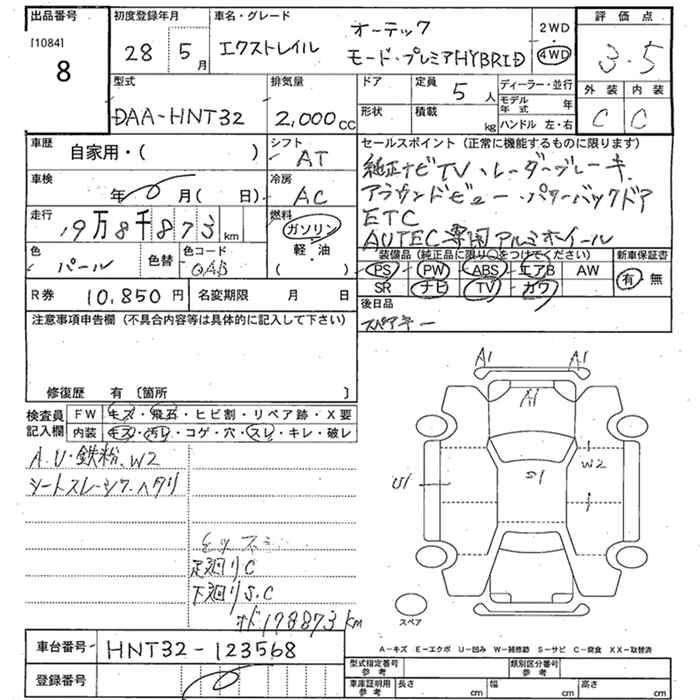 出品番号 初度登録年月 車名・グレード 評価点
[1084] 8 28 5月 エクストレイル オーテック 2WD 3.5
モード・プレミアHYBRID 4WD
型式 排気量 ドア 定員 5人 ディーラー・並行 外装 内装
DAA-HNT32 2,000cc 形状 積載 kg モデル年式 年 C C
ハンドル 左・右
車歴 自家用・( ) シフト AT セールスポイント (正常に機能するものに限ります)
純正ナビTV、レーダーブレーキ
車検 年 0 月( 日) 冷房 AC アラウンドビュー・パワーバックドア
ETC
走行 燃料 ガソリン AUTEC専用アルミホイール
km
色 パール 色替 色コード QAB 軽・油 ( )
装備品 (純正品に限り○をつけてください) 新車保証書
PS PW ABS エアB AW 有・無
SR ナビ TV カワ
R券 10,850円 名変期限 月 日 後日品
スペアキー
注意事項申告欄 (不具合内容等は具体的に記入して下さい)
修復歴 有 〔箇所 〕
検査員記入欄 FW キズ・飛石・ヒビ割・リペア跡・X要
内装 キズ・汚レ・コゲ・穴・スレ・キレ・破レ
A1 A1
A1
A.U・鉄粉、W2 W2
シートスレ・シワ・ヘタリ U1 S1
足廻りC
下廻りS.C
スペア
オド178873km
車台番号 HNT32-123568 A-キズ E-エクボ U-凹み W-補修跡 S-サビ C-腐食 XX-取替済
登録番号 0 型式指定番号 参考 類別区分番号 参考
車庫証明用 参考 長さ cm 幅 cm 高さ cm